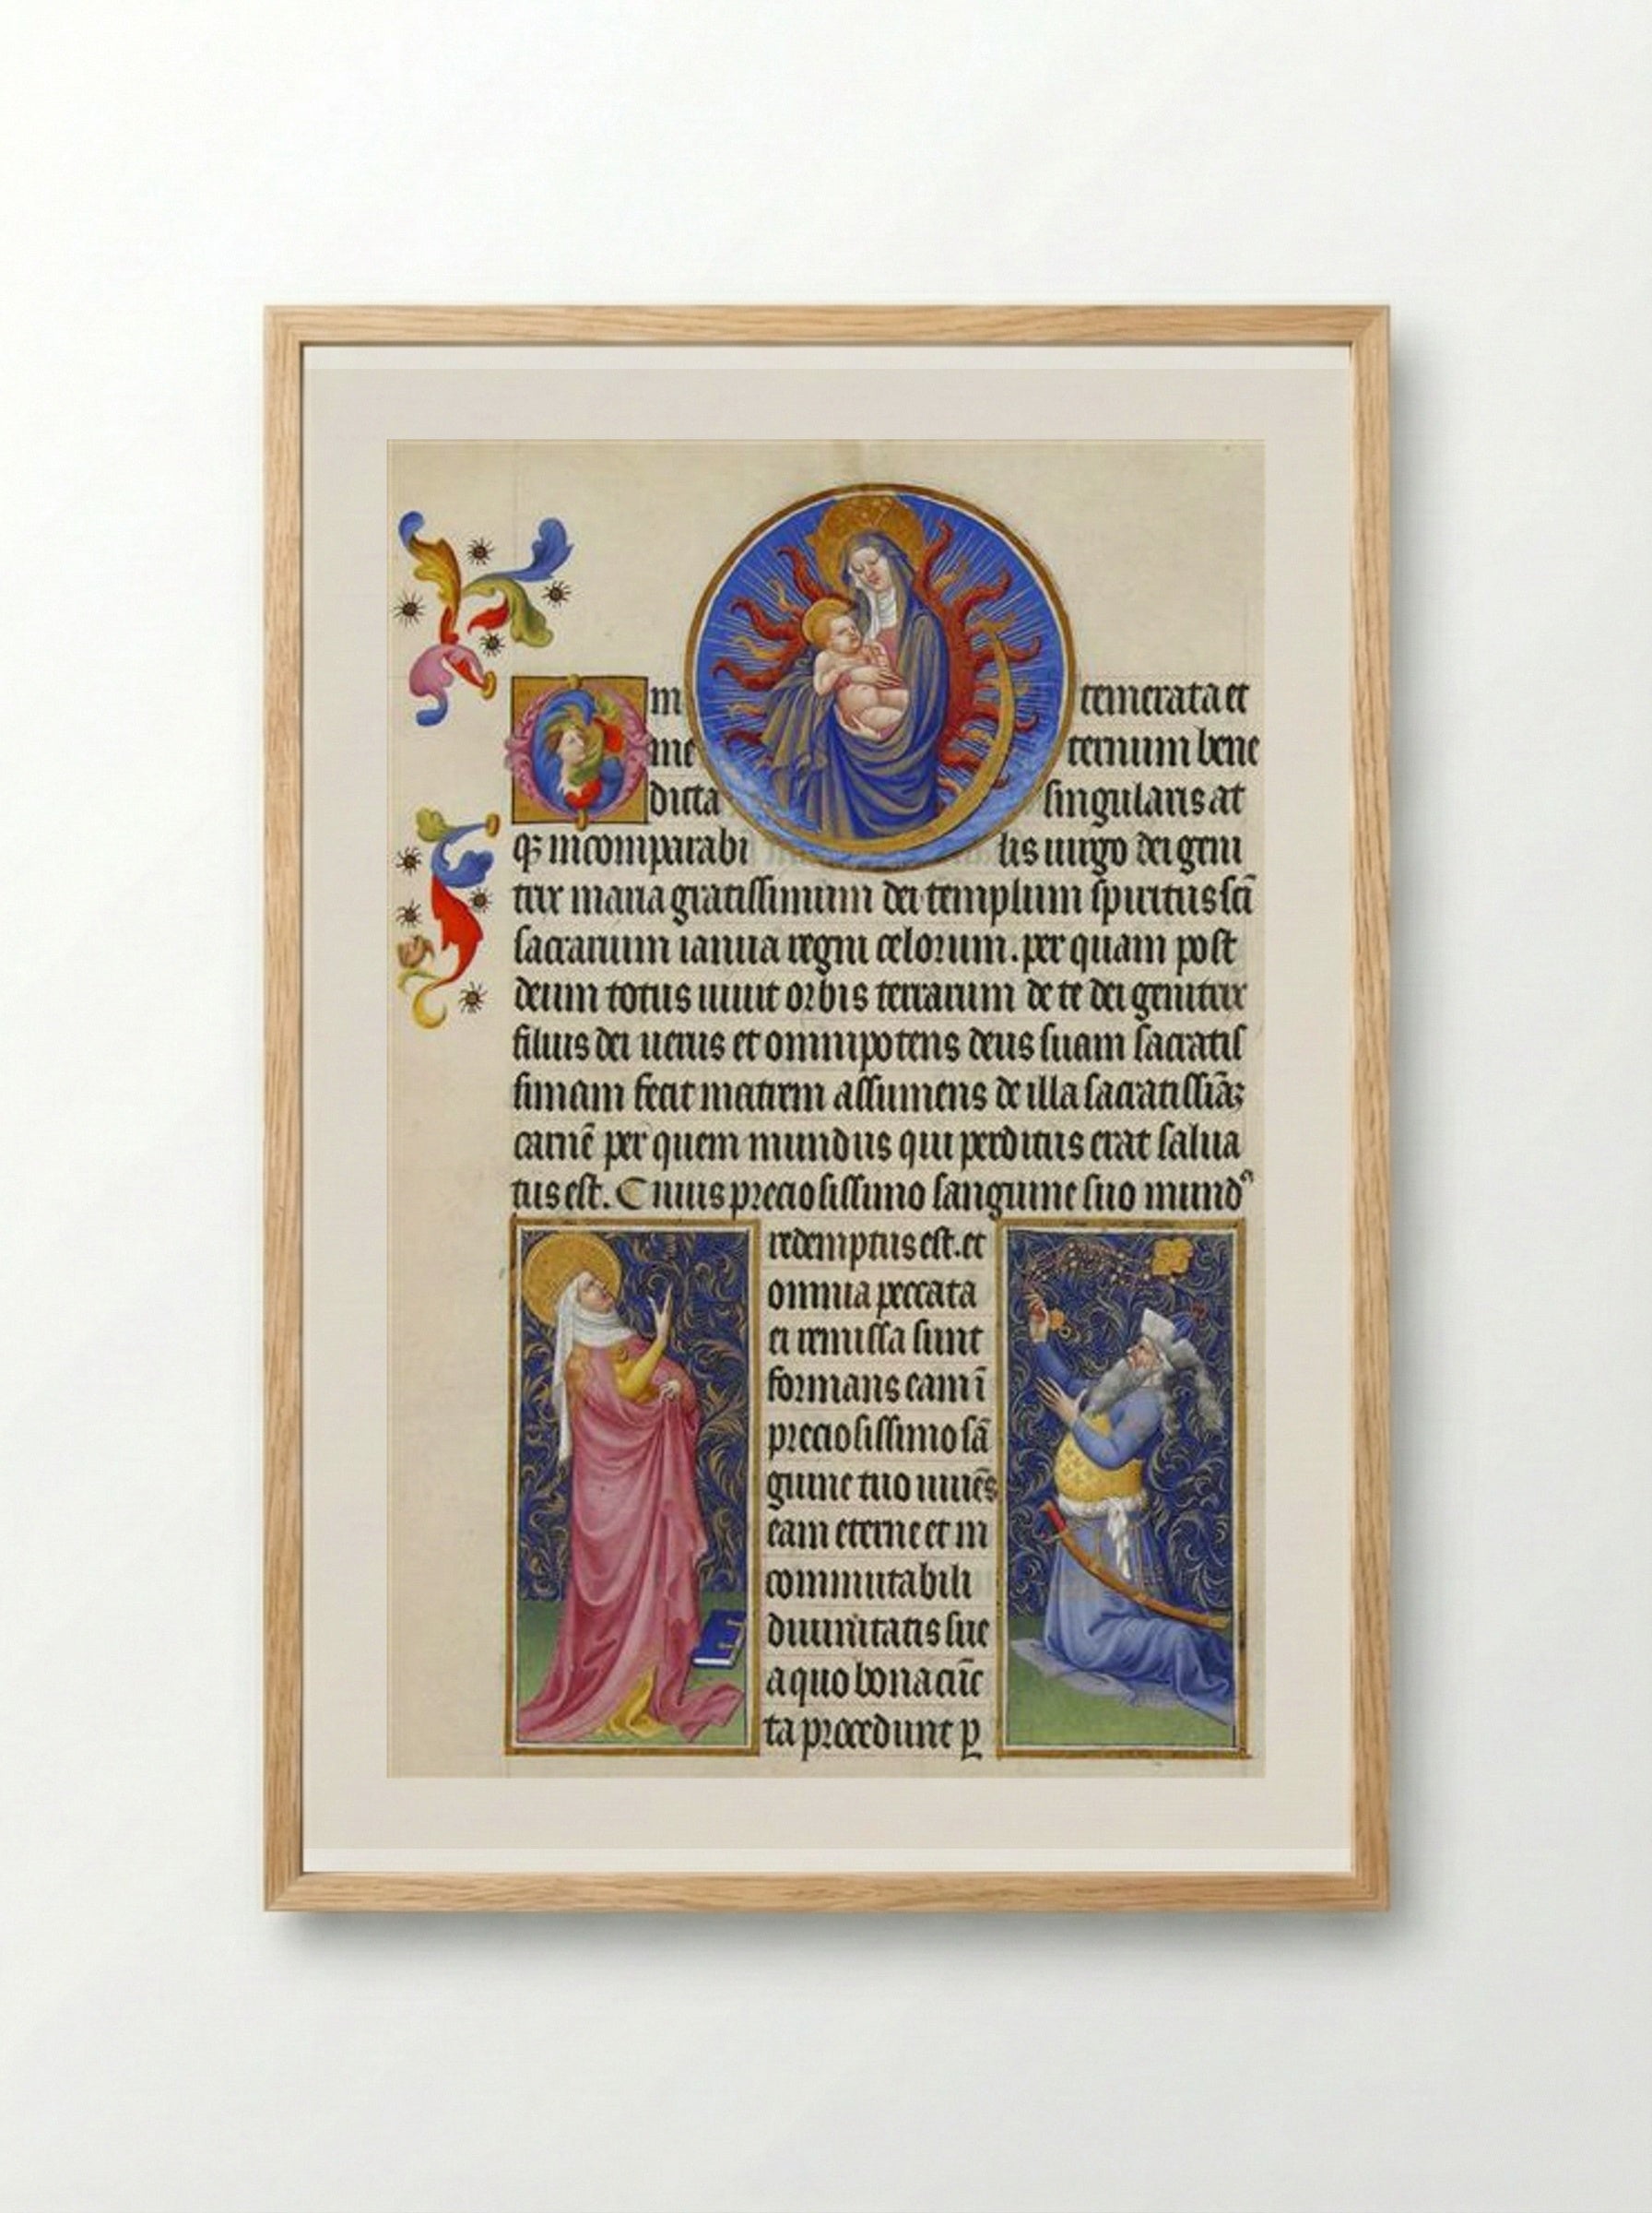 O in temerata et
ine ternum bene
dicta singularis at
qꝫ incomparabi lis uirgo dei geni
trix maria gratissimum dei templum spiritus scī
sacrarium ianua regni celorum. per quam post
deum totus uiuit orbis terrarum de te dei genitrix
filius dei uerus et omnipotens deus suam sacratis
simam fecit matrem assumens de illa sacratissiāꝫ
carnē per quem mundus qui perditus erat salua
tus est. Cuius preciosissimo sanguine suo mundꝰ
redemptus est. et
omnia peccata
ei remissa sunt
formans eam ī
preciosissimo sā
guine tuo uiuēs
eam eterne et in
commutabili
diuinitatis sue
a quo bona cūc
ta procedunt ꝑ